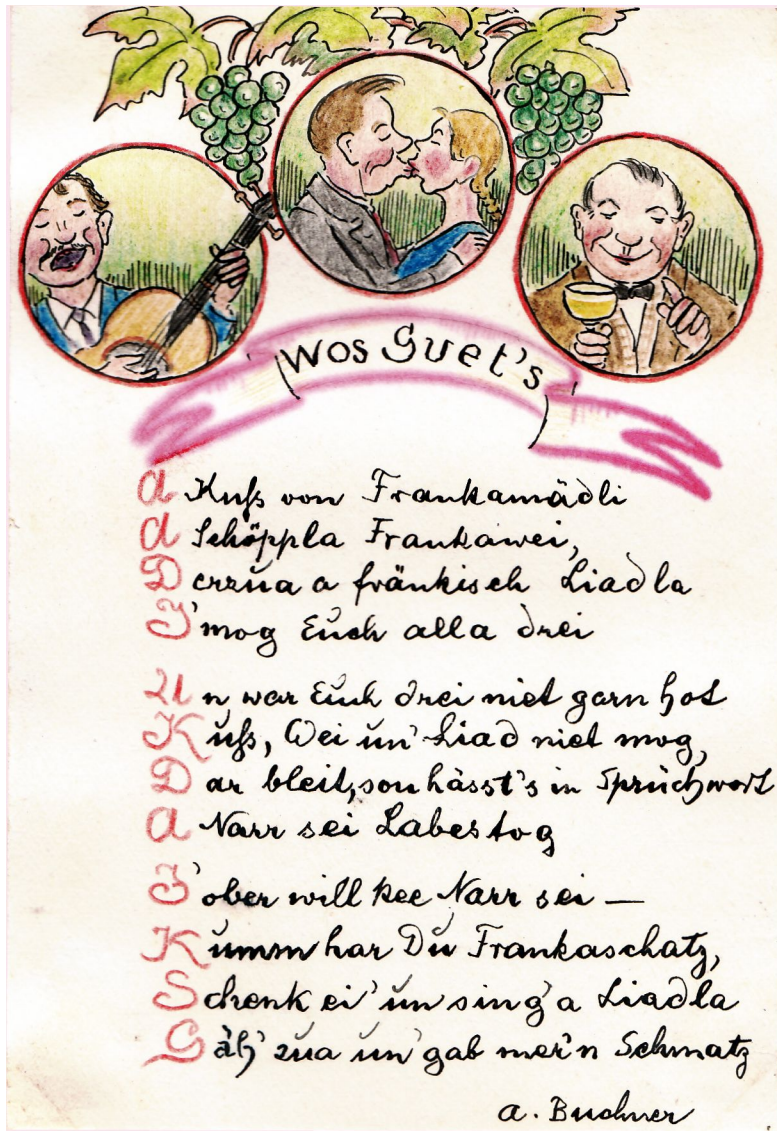 Wos Guet's
A Kuß von Frankamädli
A Schöppla Frankawei,
Derzua a fränkisch Liadla
I' mog Euch alla drei
Un war Euch drei niet garn hot
Kuß, Wei un' Liad niet mog,
Dar bleit, sou hässt's in Sprüchwort
A Narr sei Labestog
I' ober will kee Narr sei —
Kumm har Du Frankaschatz,
Schenk ei' un sing' a Liadla
Gäh' zua un' gab mer'n Schmatz
A. Buchner